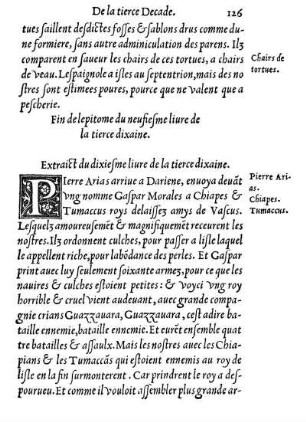 De la tierce Decade. 126
tues saillent desdictes fosses & sablons drus comme du-
ne formiere, sans autre adminiculation des parens. Ilz
comparent en saueur les chairs de ces tortues, a chairs
de veau. Lespaignole a isles au septentrion, mais des no
stres sont estimees poures, pource que ne valent que a
pescherie.
Chairs de
tortues.
Fin de lepitome du neufiesme liure de
la tierce dixaine.
Extraict du dixiesme liure de la tierce dixaine.
PIerre Arias arriue a Dariene, enuoya deuāt
vng nomme Gaspar Morales a Chiapes &
Tumaccus roys delaissez amys de Vascus.
Lesquelz amoureusemēt & magnifiquemēt receurent les
nostres. Ilz ordonnent culches, pour passer a lisle laquel
le appellent riche, pour labēdance des perles. Et Gaspar
print auec luy seulement soixante armez, pour ce que les
nauires & culches estoient petites: & voyci vng roy
horrible & cruel vient audeuant, auec grande compa-
gnie crians Guazzauara, Guazzauara, cest adire ba-
taille ennemie, bataille ennemie. Et eurēt ensemble quat
tre batailles & assaulx. Mais les nostres auec les Chia-
pians & les Tumaccās qui estoient ennemis au roy de
lisle en la fin surmonterent. Car prindrent le roy a des-
pourueu. Et comme il vouloit assembler plus grande ar-
Pierre Ari-
as.
Chiapes.
Tumaccus.